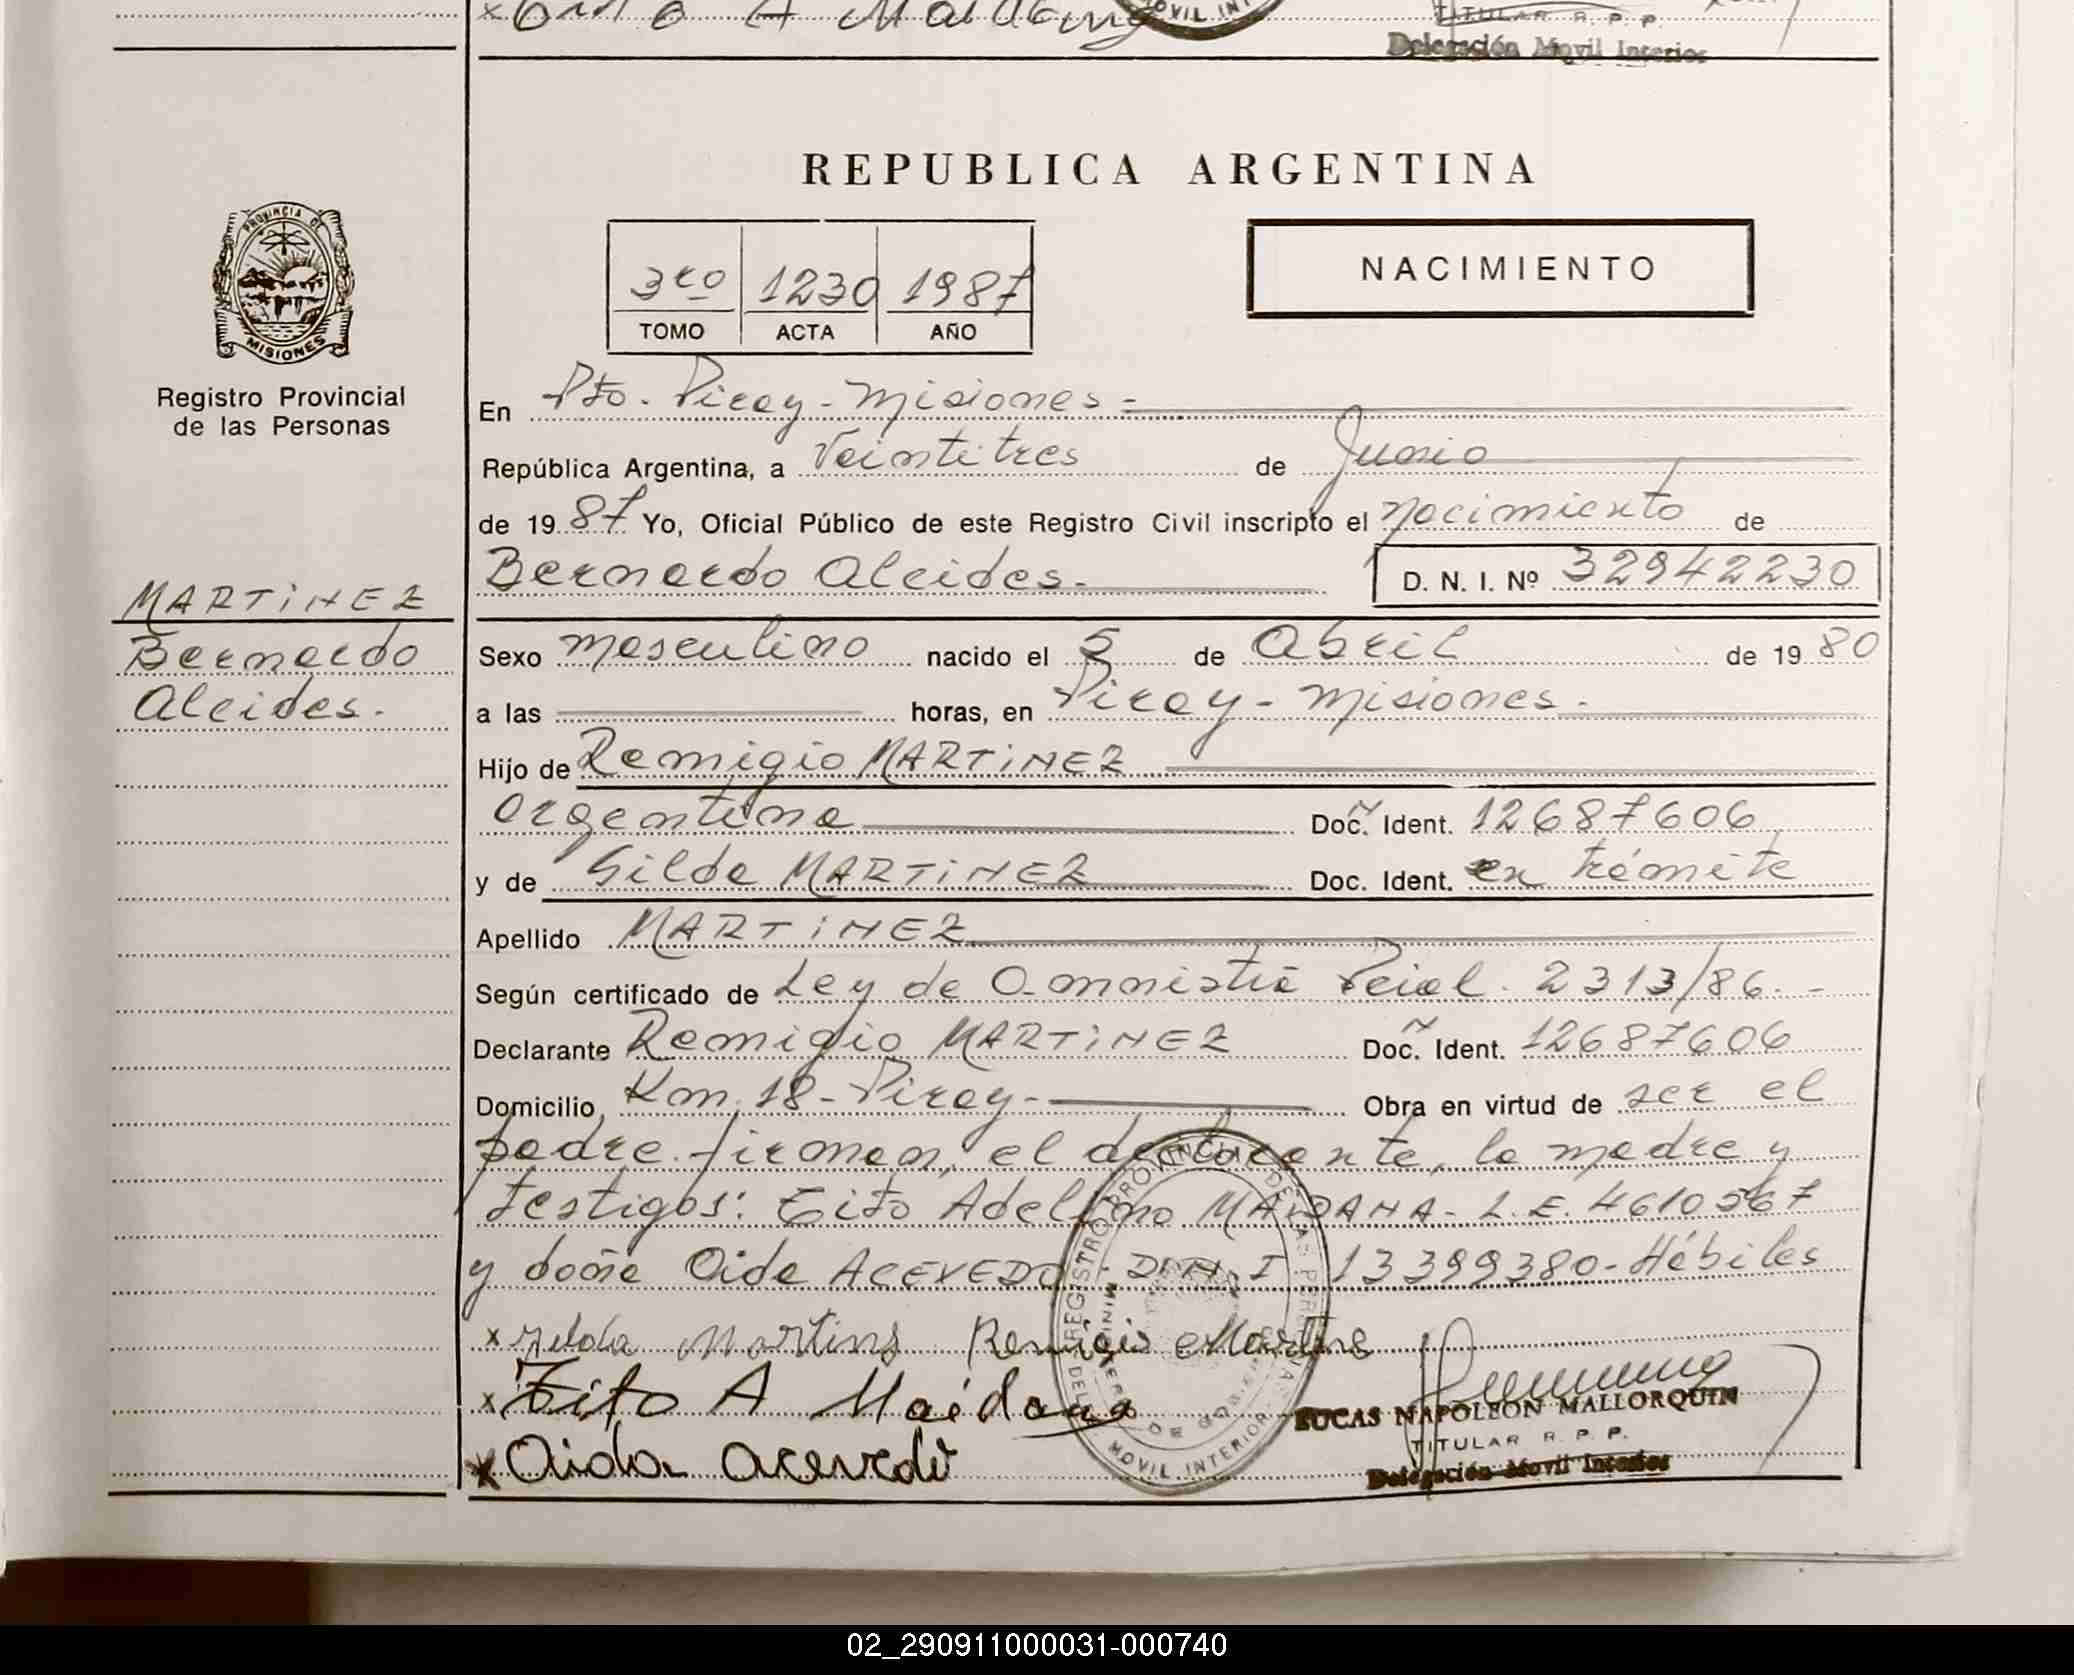 MOVIL INT
TITULAR R. P. P.
Delegación Movil Interior
REPUBLICA ARGENTINA
PROVINCIA DE
MISIONES
Registro Provincial
de las Personas
3ro 1230 1987
TOMO ACTA AÑO
NACIMIENTO
En Pto. Piray - Misiones -
República Argentina, a Veintitres de Junio
de 1987 Yo, Oficial Público de este Registro Civil inscripto el nacimiento de
Bernardo Alcides.- D. N. I. Nº 32942230
MARTINEZ
Bernardo
Alcides.
Sexo masculino nacido el 5 de Abril de 1980
a las horas, en Piray - Misiones.
Hijo de Remigio MARTINEZ
argentina Doc. Ident. 12687606
y de Gilda MARTINEZ Doc. Ident. en trámite
Apellido MARTINEZ
Según certificado de Ley de Amnistia Pcial. 2313/86. -
Declarante Remigio MARTINEZ Doc. Ident. 12687606
Domicilio Km. 18 - Piray - Obra en virtud de ser el
padre. firman, el declarante, la madre y
testigos: Tito Adelfino MAIDANA - L.E. 4610567
y doña Aida ACEVEDO D.N.I 13399380 - Hábiles
x Remigio Martins
x Tito A Maidana
x Aida acevedo
REGISTRO PROVINCIAL DE LAS PERSONAS
MOVIL INTERIOR
LUCAS NAPOLEON MALLORQUIN
TITULAR R. P. P.
Delegación Movil Interior
02_290911000031-000740